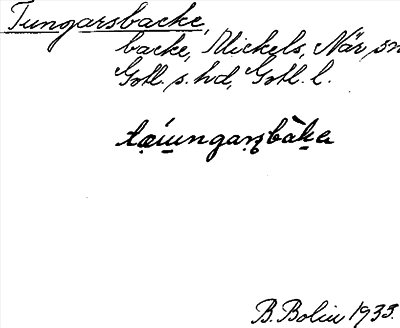 Tungarsbacke,
backe, Mickels, När sn
Gotl. s. hd, Gotl. l.
tæiungaṣbàka
B. Bolin 1933.